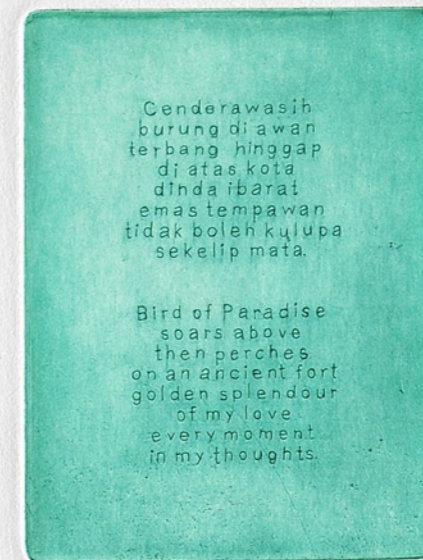 Cenderawasih
burung di awan
terbang hinggap
di atas kota
dinda ibarat
emas tempawan
tidak boleh kulupa
sekelip mata.
Bird of Paradise
soars above
then perches
on an ancient fort
golden splendour
of my love
every moment
in my thoughts.